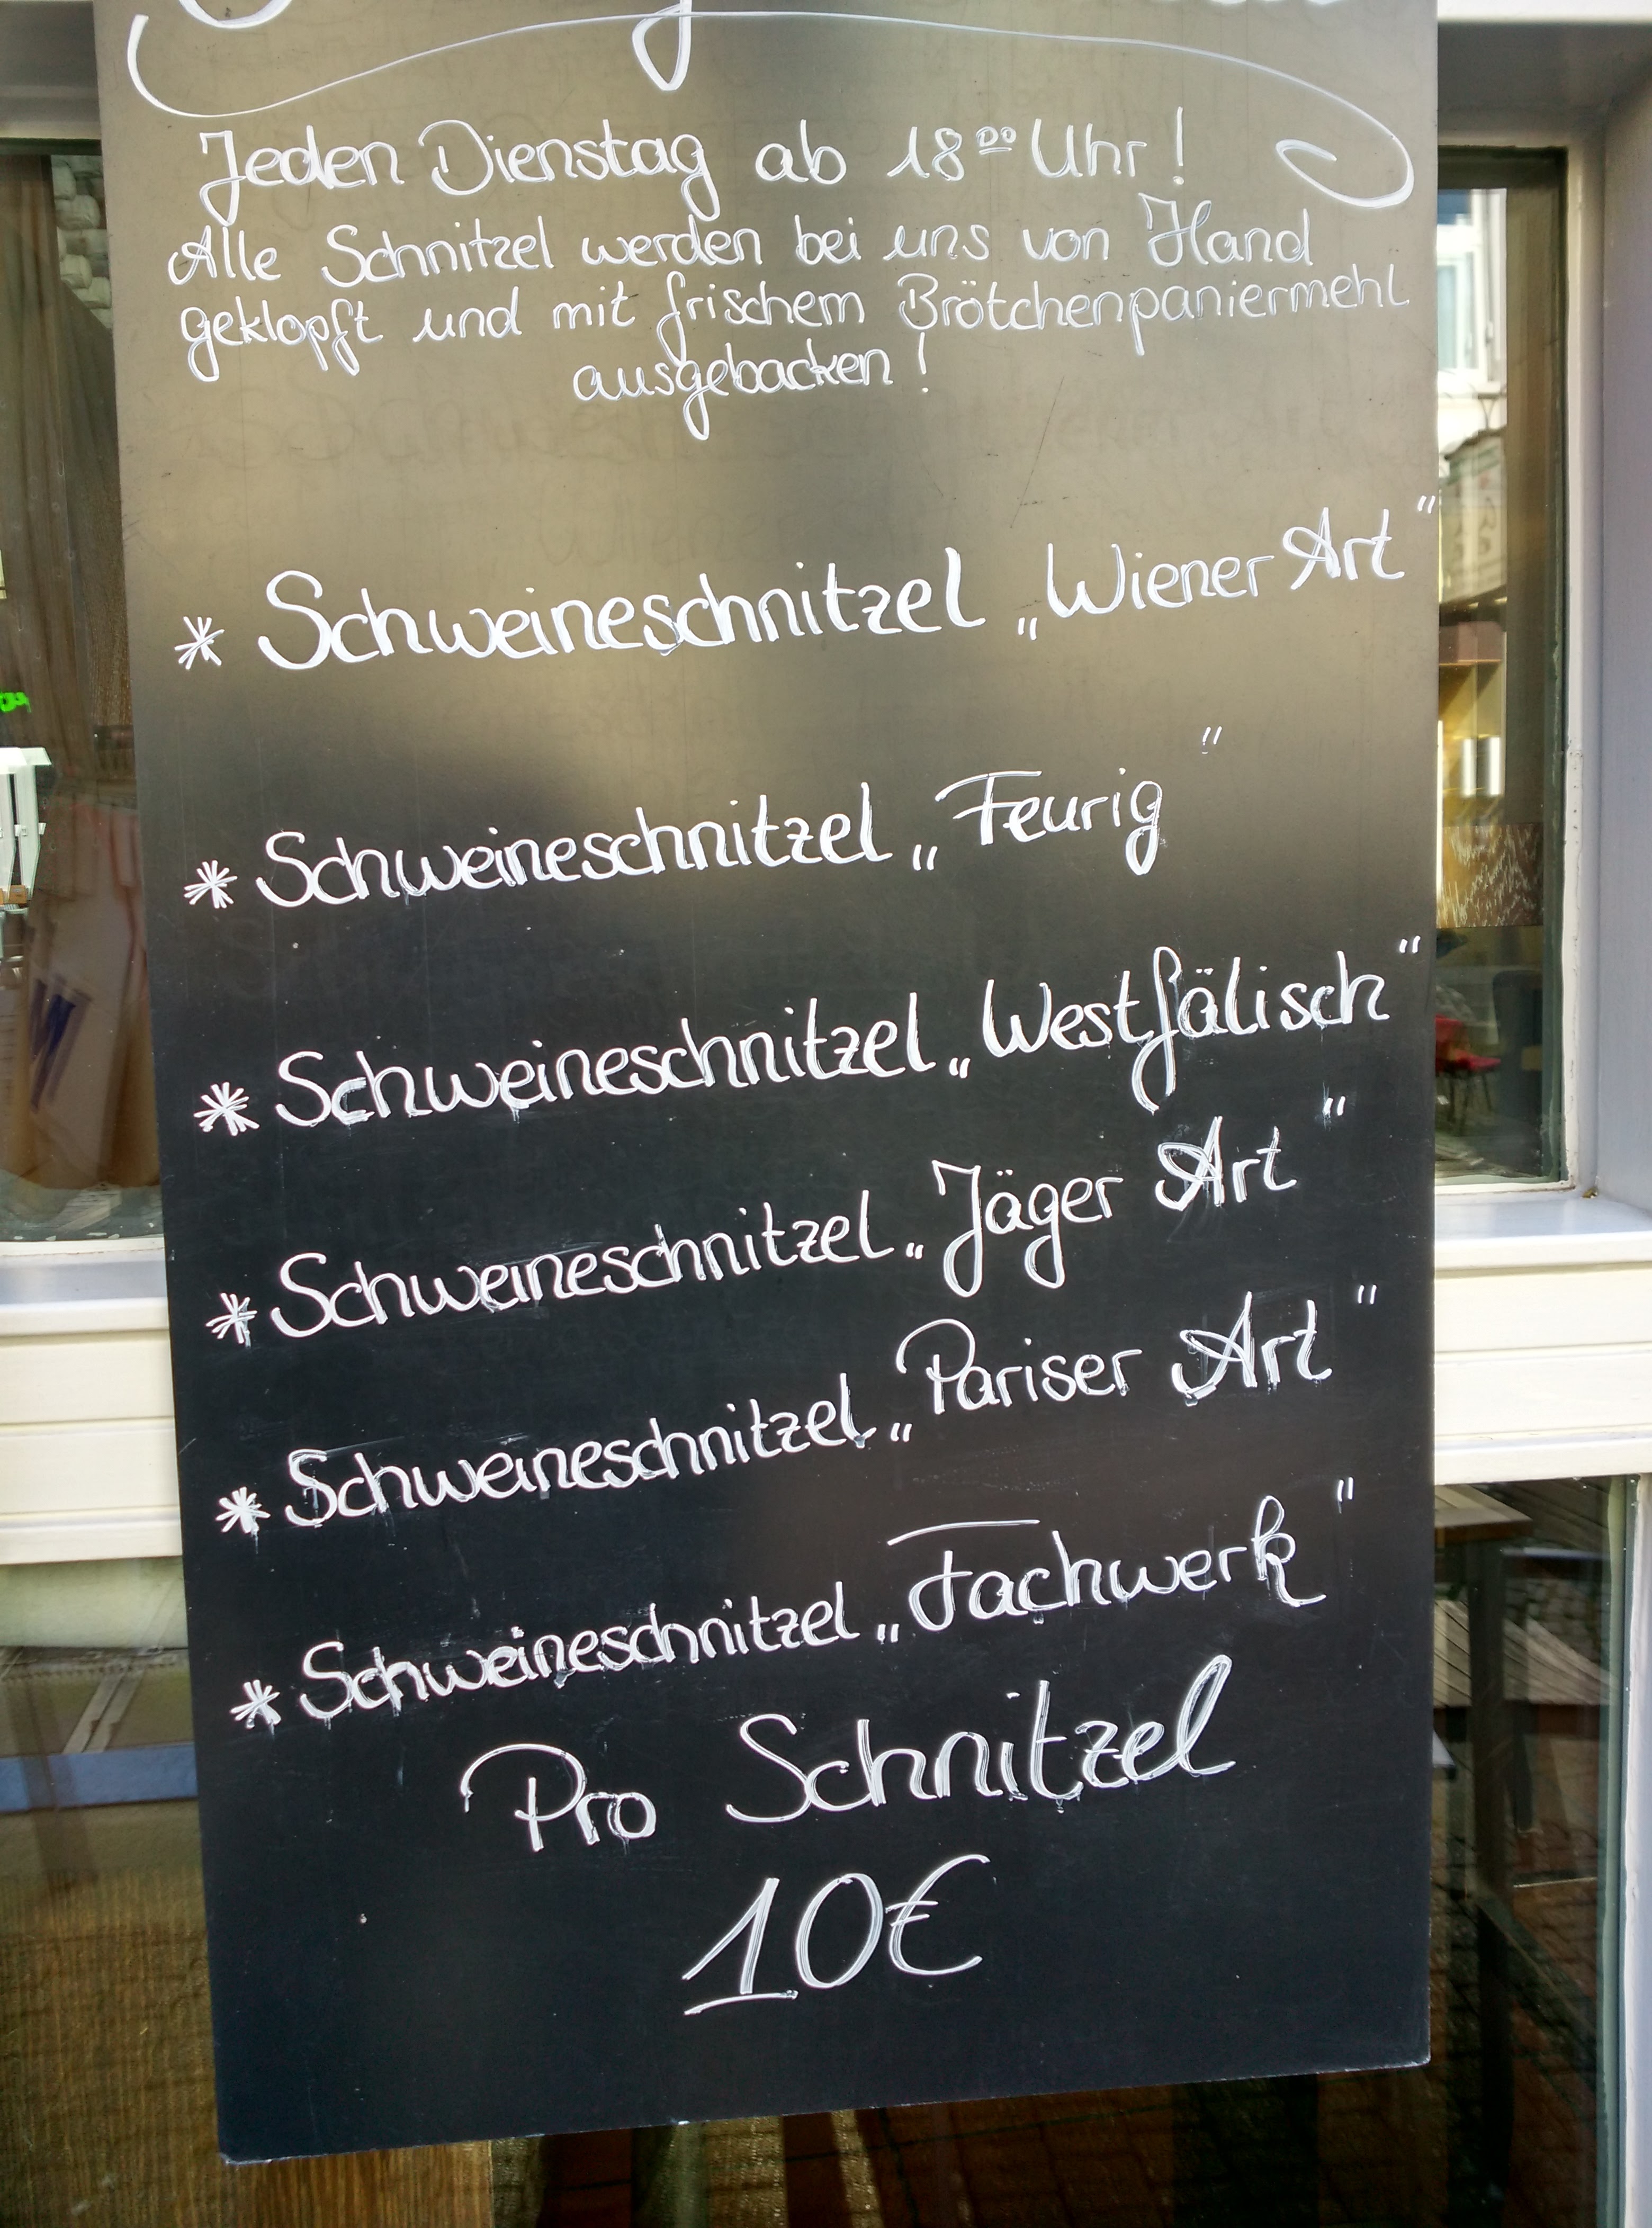 Jeden Dienstag ab 18⁰⁰ Uhr!
Alle Schnitzel werden bei uns von Hand
geklopft und mit frischem Brötchenpaniermehl
ausgebacken!
* Schweineschnitzel „Wiener Art“
* Schweineschnitzel „Feurig“
* Schweineschnitzel „Westfälisch“
* Schweineschnitzel „Jäger Art“
* Schweineschnitzel „Pariser Art“
* Schweineschnitzel „Fachwerk“
Pro Schnitzel
10€